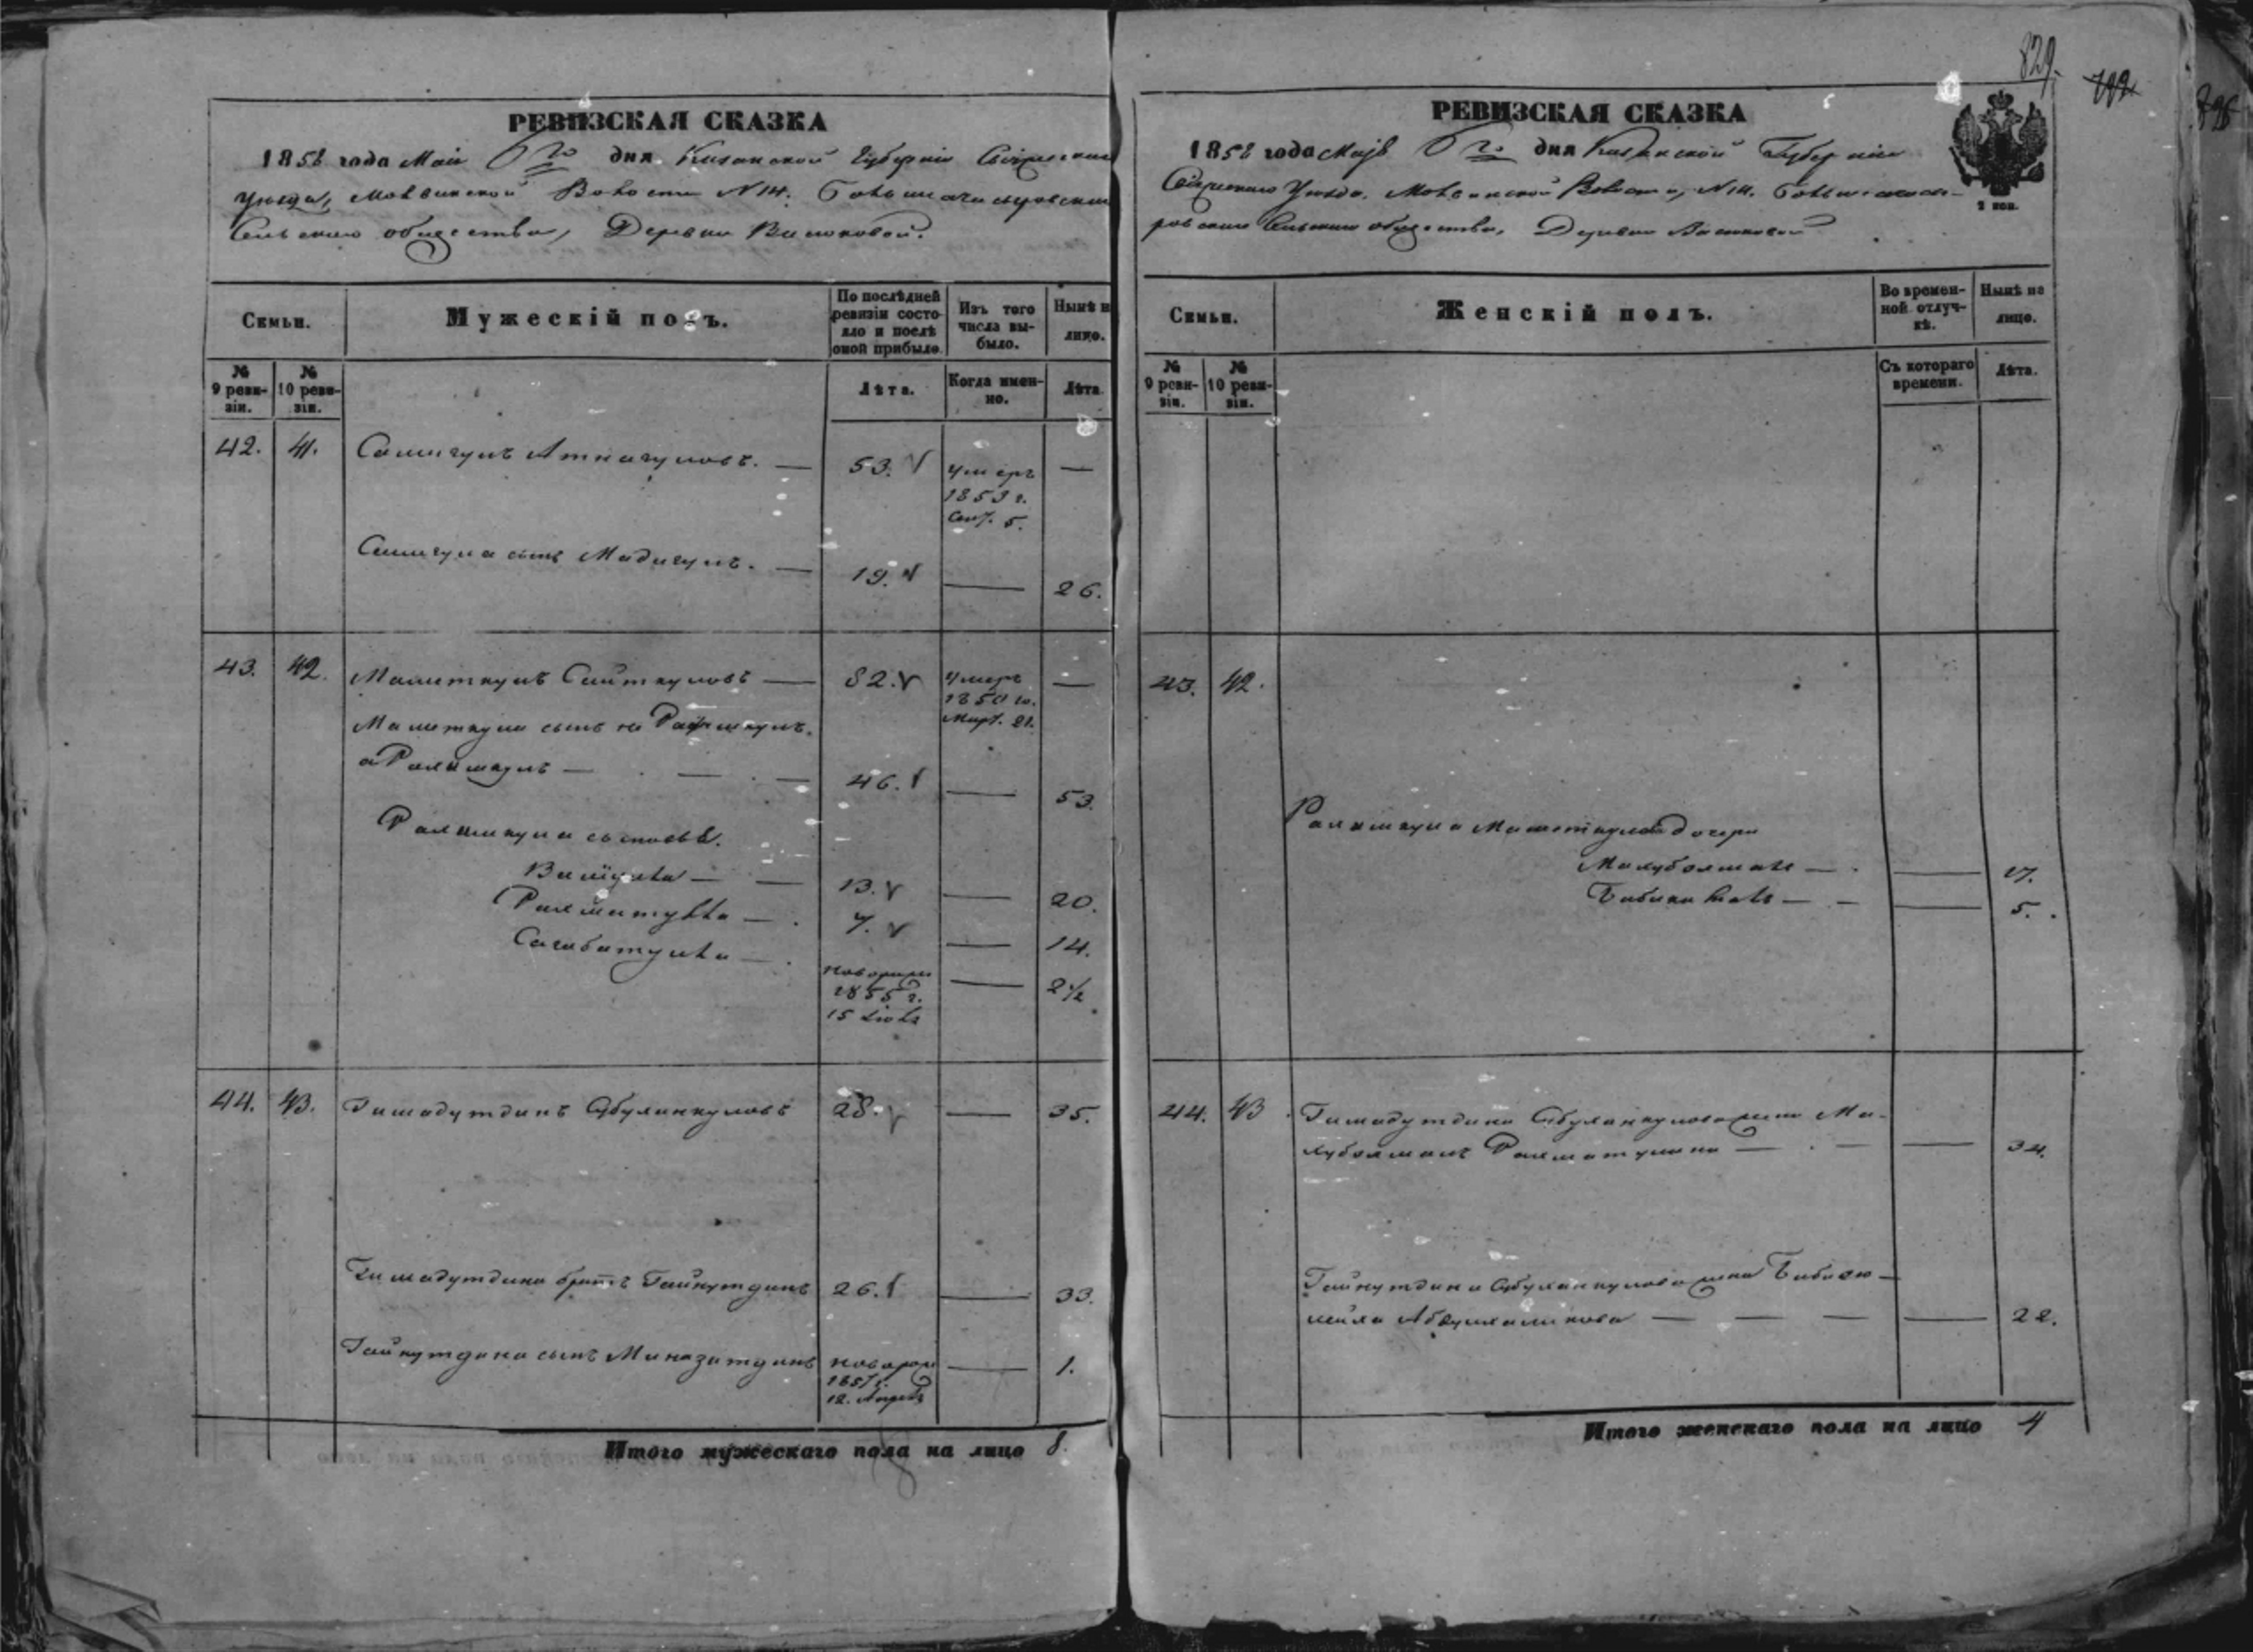 829.
РЕВИЗСКАЯ СКАЗКА
1858 года Маія 6го дня Казанской Губерніи Свіяжскаго
Уѣзда, Молвинской Волости N 14.
Сельскаго общества, Деревни Васюковой.
Семьи.
Мужескій полъ.
По послѣдней ревизіи состояло и послѣ оной прибыло.
Изъ того числа выбыло.
Нынѣ на лицо.
№ 9 ревизіи.
№ 10 ревизіи.
Лѣта.
Когда именно.
Лѣта.
42. 41. Самигулъ Атнагуловъ. — 53. умеръ —
1853 г.
Сент. 5.
Самигула сынъ Мадигулъ. — 19. — 26.
43. 42. Маметкулъ Саиткуловъ — 82. умеръ —
1850 го.
Март. 21.
Маметкула сынъ не
а Рахимкулъ — — — 46. — 53.
Рахимкула сыновья.
— — 13. — 20.
Рахматулла — 7. — 14.
Сагабатулла — новорожд — 2 1/2
1855 г.
15
44. 43. Гимадутдинъ Абулханкуловъ 28. — 35.
Гимадутдина братъ Гайнутдинъ 26. — 33.
Гайнутдина сынъ Миназитдинъ новорож — 1.
1857 г.
12. Апрель
Итого мужескаго пола на лицо 8.
РЕВИЗСКАЯ СКАЗКА
1858 года Маія 6го дня Казанской Губерніи
Свіяжскаго Уѣзда. Молвинской Волости, N 14.
Сельскаго общества, Деревни Васюковой
2 коп.
Семьи.
Женскій полъ.
Во временной отлучкѣ.
Нынѣ на лицо.
№ 9 ревизіи.
№ 10 ревизіи.
Съ котораго времени.
Лѣта.
43. 42.
Рахимкула Маметкулова дочери
Махубзямалъ — — 17.
— — 5.
44. 43. Гимадутдина Абулханкулова жена Ма-
хубзямалъ Рахматулина — — — 34.
Гайнутдина Абулханкулова жена
— — — — 22.
Итого женскаго пола на лицо 4